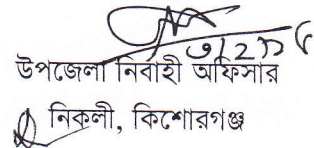 উপজেলা নির্বাহী অফিসার
নিকলী, কিশোরগঞ্জ